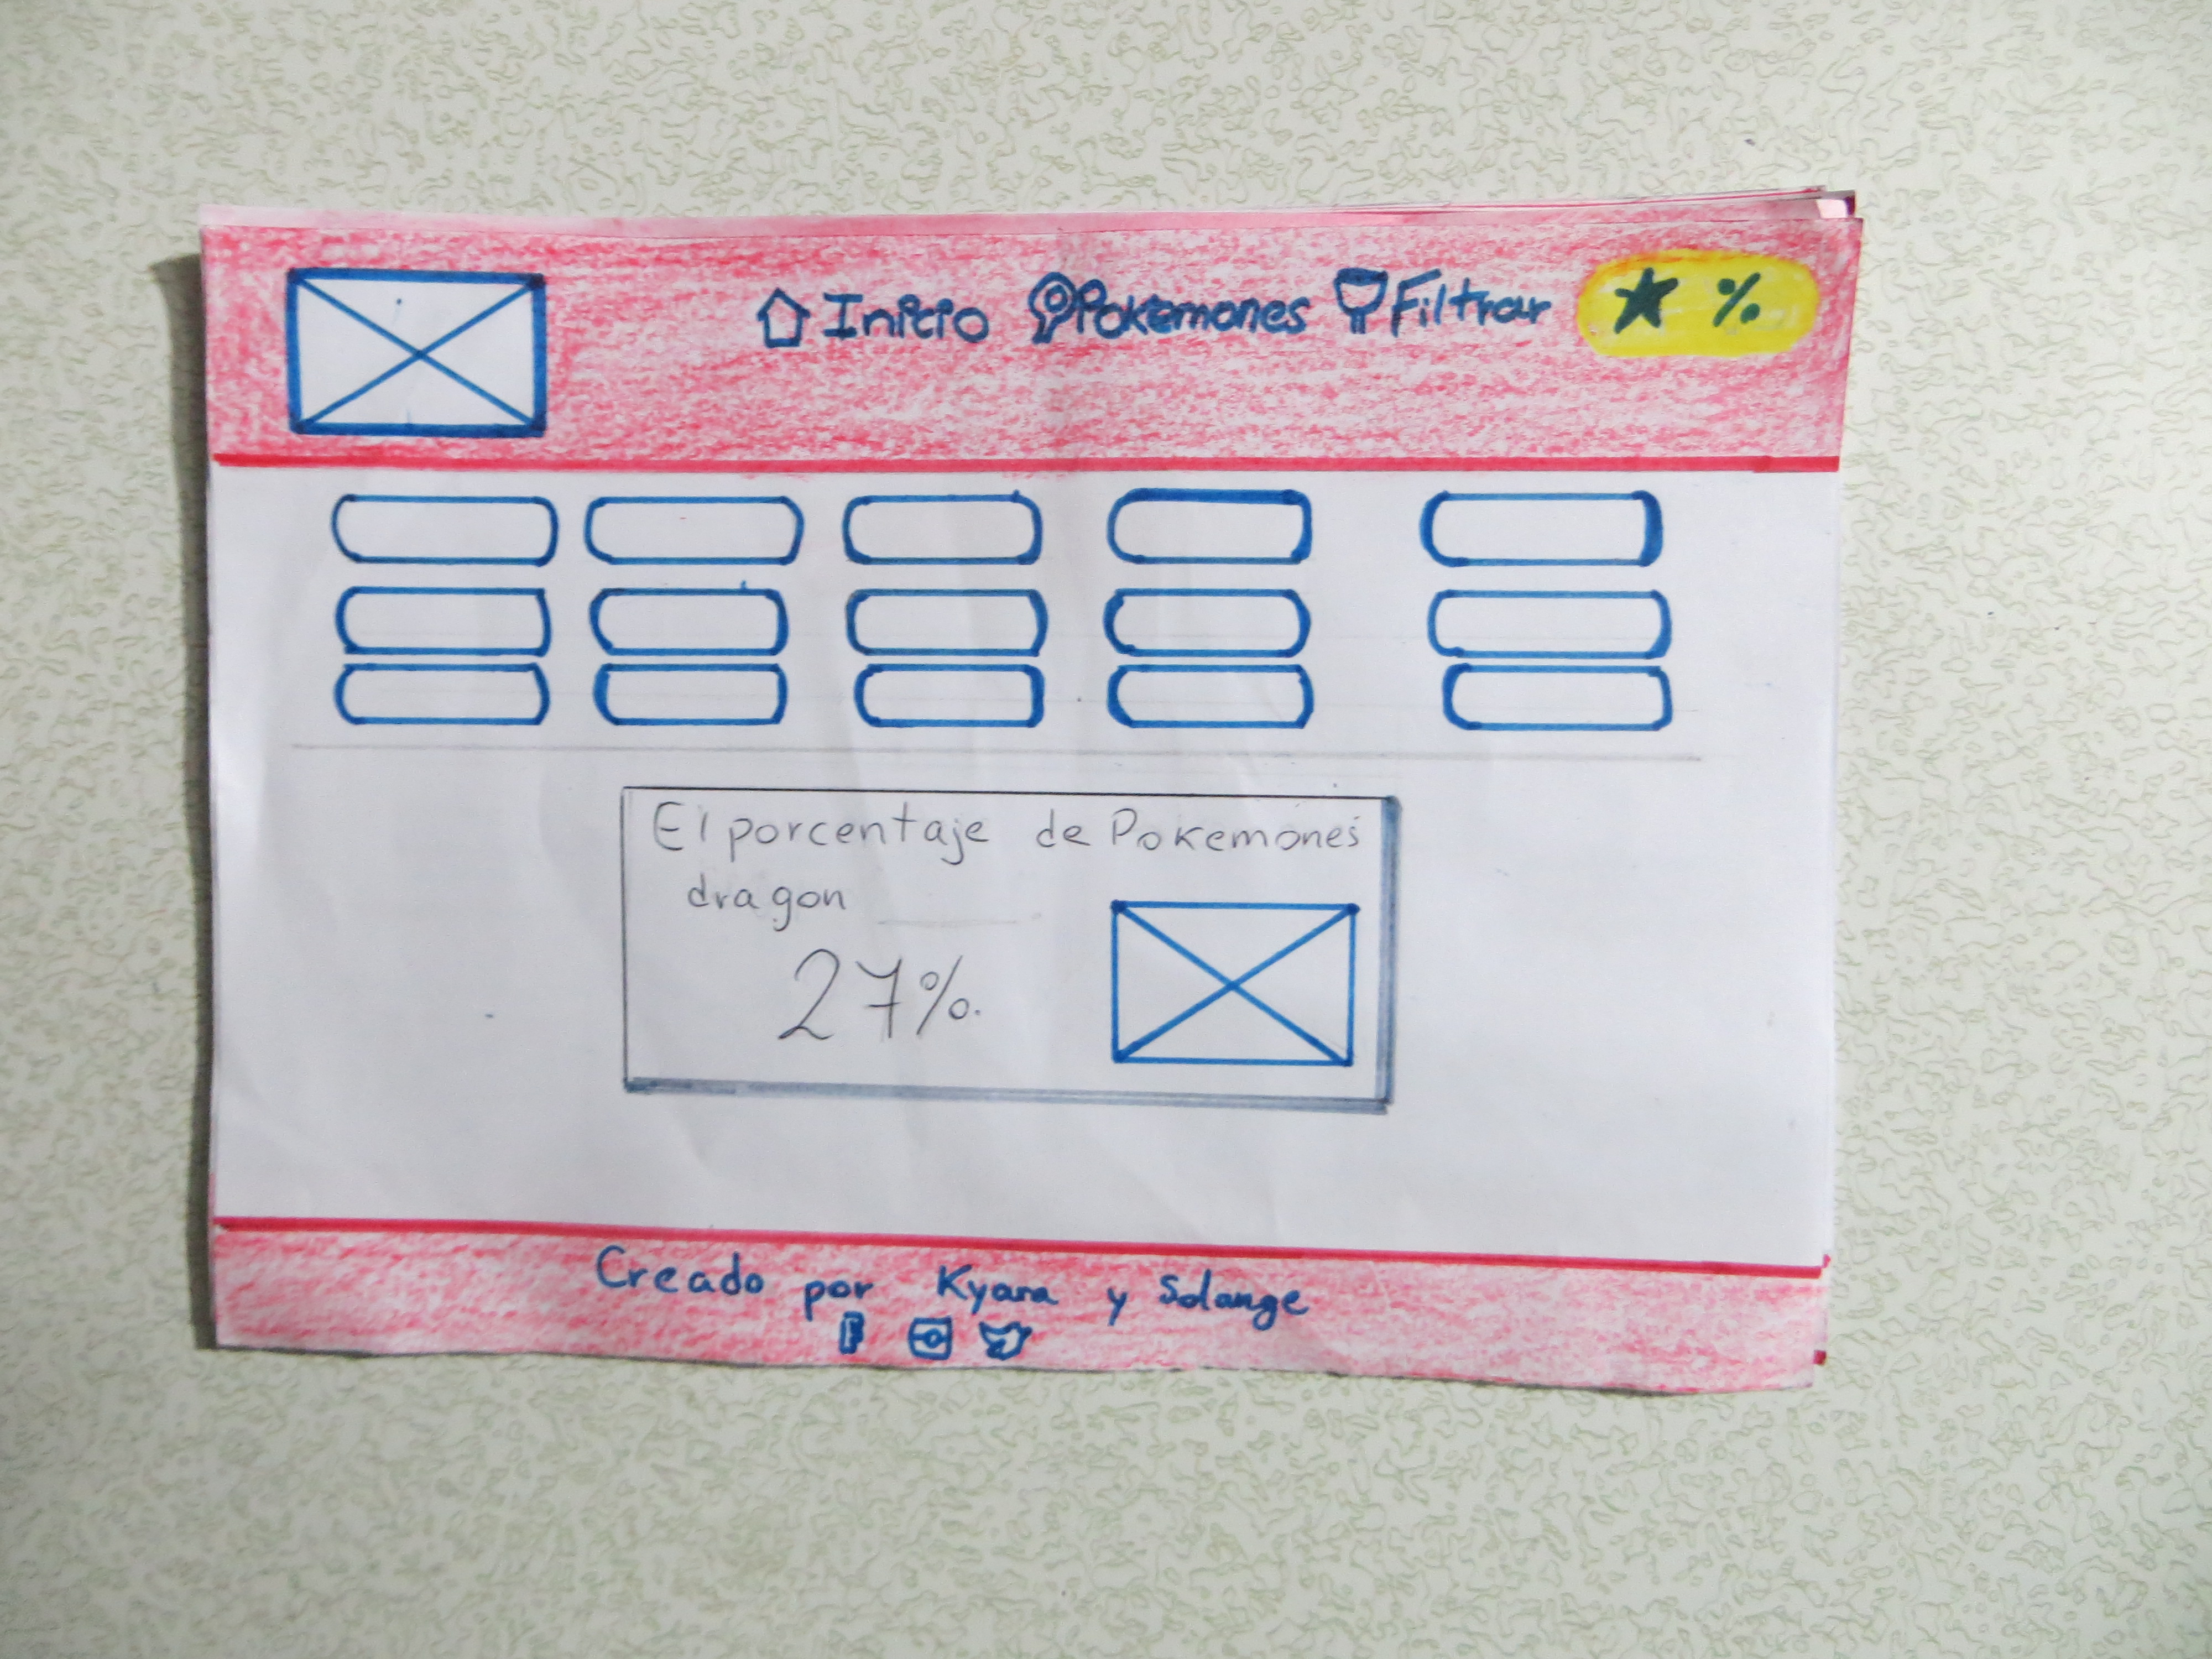 Inicio Pokemones Filtrar ★ %
El porcentaje de Pokemones
dragon
27%.
Creado por Kyara y Solange